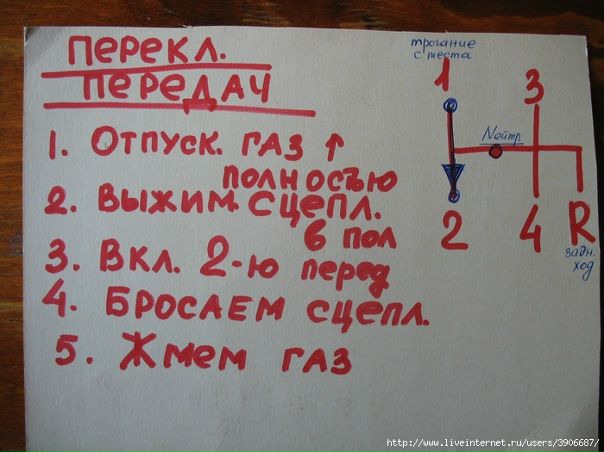 ПЕРЕКЛ.
ПЕРЕДАЧ
1. ОТПУСК. ГАЗ ↑
ПОЛНОСЪЮ
2. ВЫЖИМ. СЦЕПЛ.
В ПОЛ
3. ВКЛ. 2-Ю ПЕРЕД
4. БРОСАЕМ СЦЕПЛ.
5. ЖМЕМ ГАЗ
трогание
с места
1 3
Nейтр
2 4 R
задн.
ход
http://www.liveinternet.ru/users/3906687/